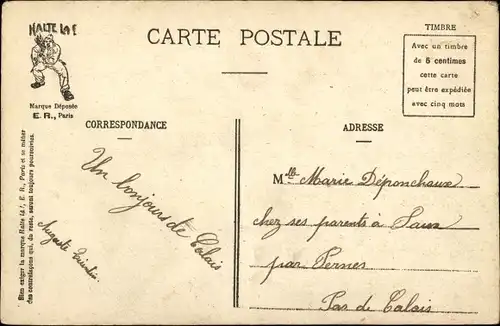 HALTE LA !
Marque Déposée
E. R., Paris
CARTE POSTALE
TIMBRE
Avec un timbre
de 5 centimes
cette carte
peut être expédiée
avec cinq mots
CORRESPONDANCE
ADRESSE
Un bonjours de Calais
Auguste
Mlle Marie Déponchaux
chez ses parents à Sains
par Pernes
Pas de Calais
Bien exiger la marque Halte là !, E. R., Paris et se méfier
des contrefaçons qui, du reste, seront toujours poursuivies.